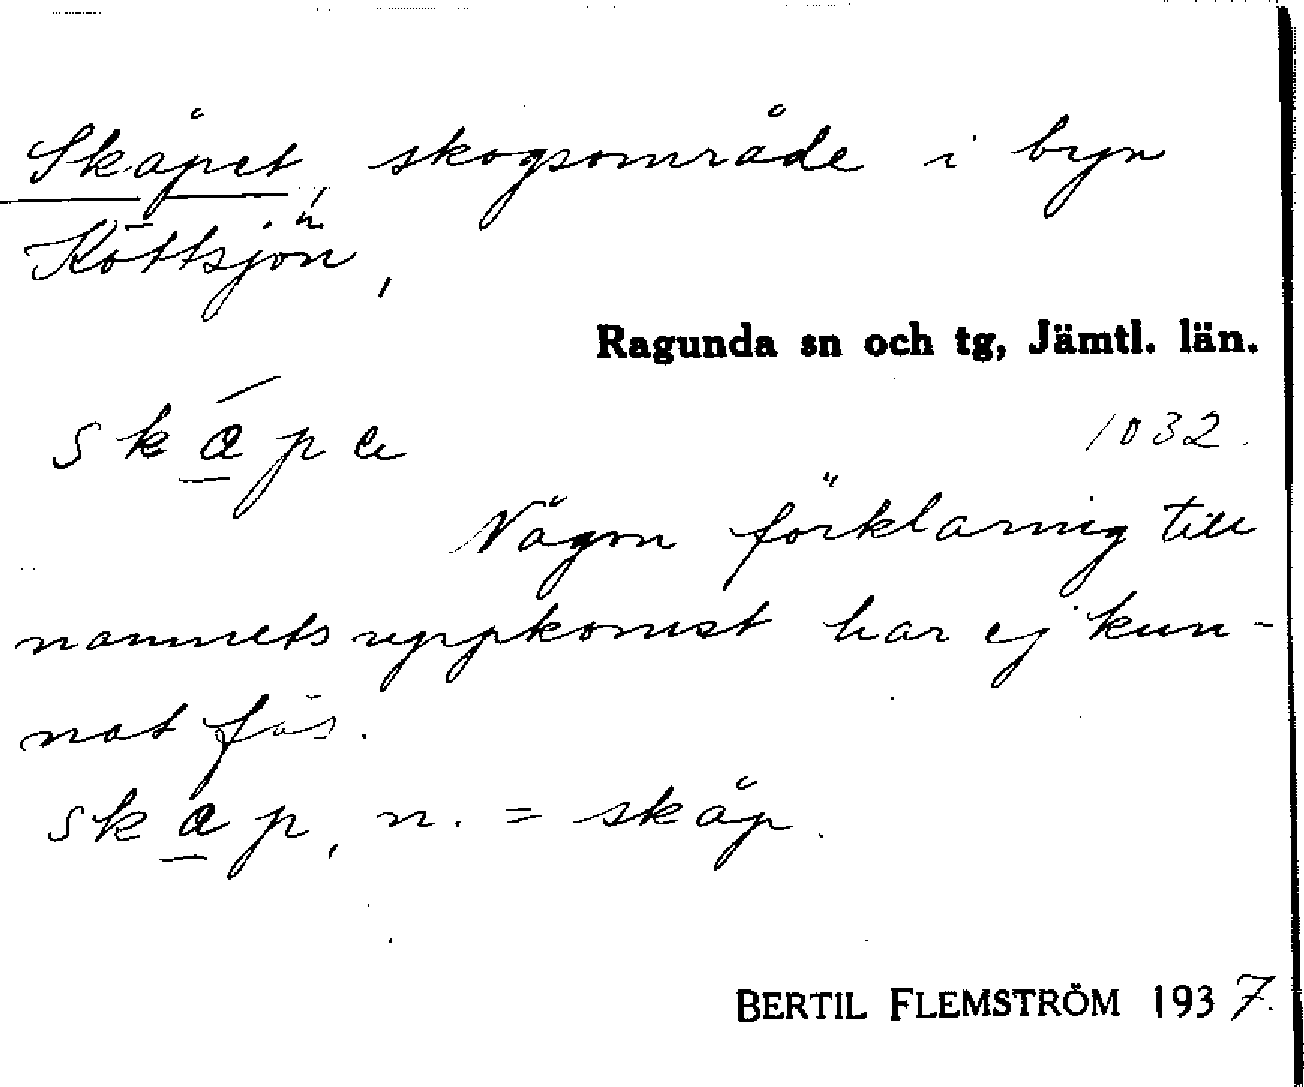 Skåpet, skogsområde i byn
Köttsjön,
Ragunda sn och tg, Jämtl. län.
1032.
Någon förklaring till
namnets uppkomst har ej kun-
nat fås.
skap, n. = skåp.
BERTIL FLEMSTRÖM 1937.